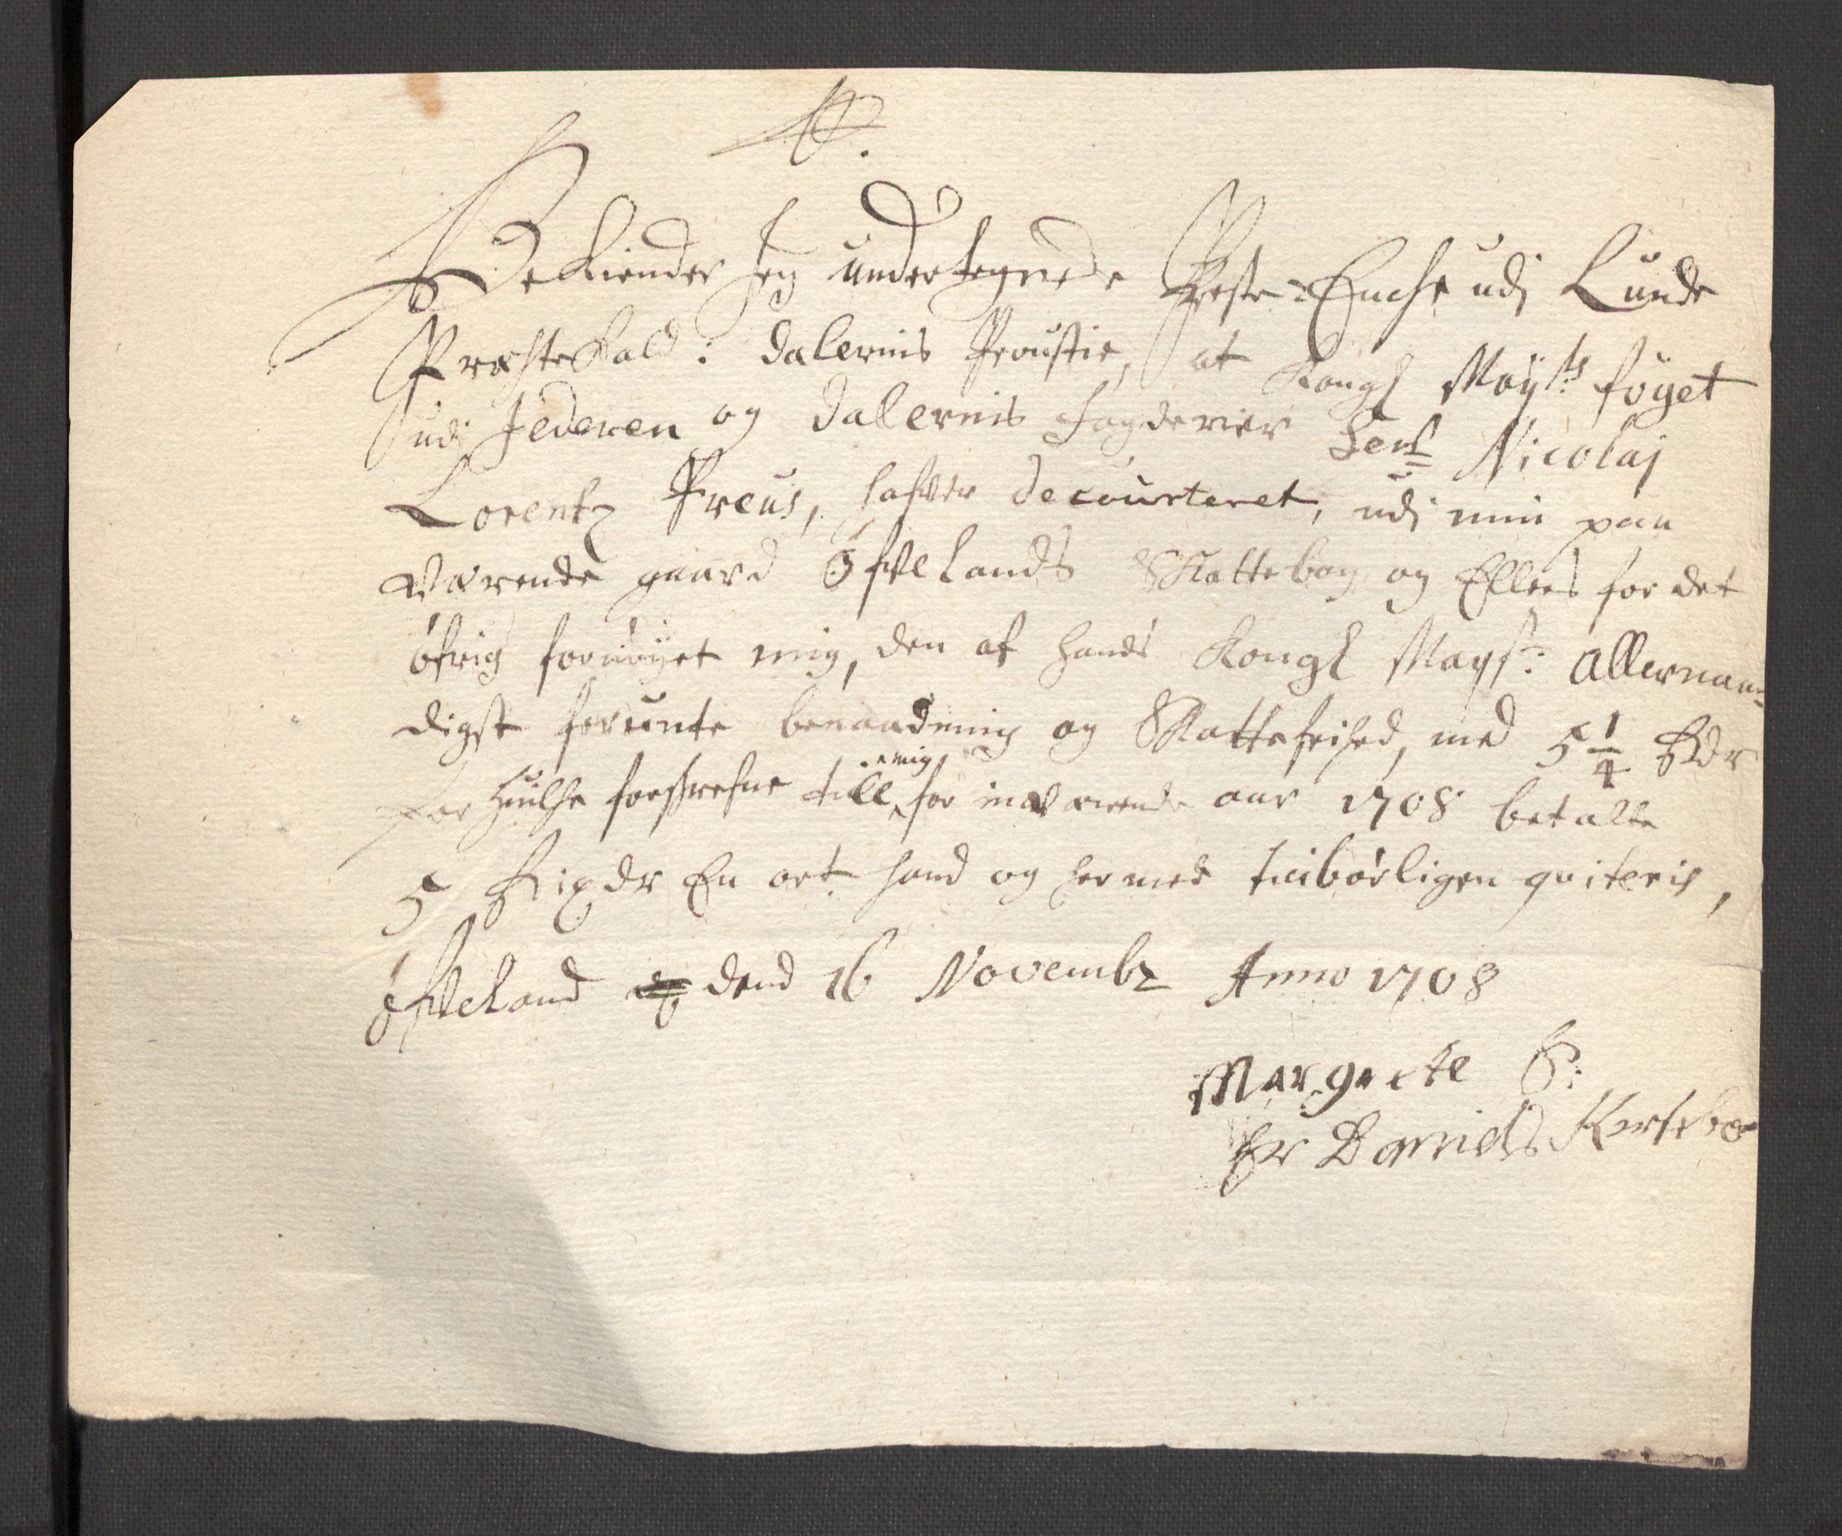 Bekiender Jeg undertegnede Preste-Enche udj Lunde
Præstekald: Dalernis Proustie, at Kongl Mayts foget
udi Jederen og Dalernis fogderier Sen Nicolaj
Lorentz Preus, hafver decourteret, udj min paa
værende gaard Øfvelands Skattebog og Ellers for det
øfrig fornøyet mig, den af hands Kongl Mayst: Allernaa-
digst forunte benaadning og Skattefrihed, med 5 1/4 Rdr
for hvilke forskrefne till mig for inværende aar 1708 betalte
5 Rixdr En ort hand og hermed tilbørligen qviteris,
Øfveland dend 16 Novembr Anno 1708
Margrete S:
Hr Davids Kortebo